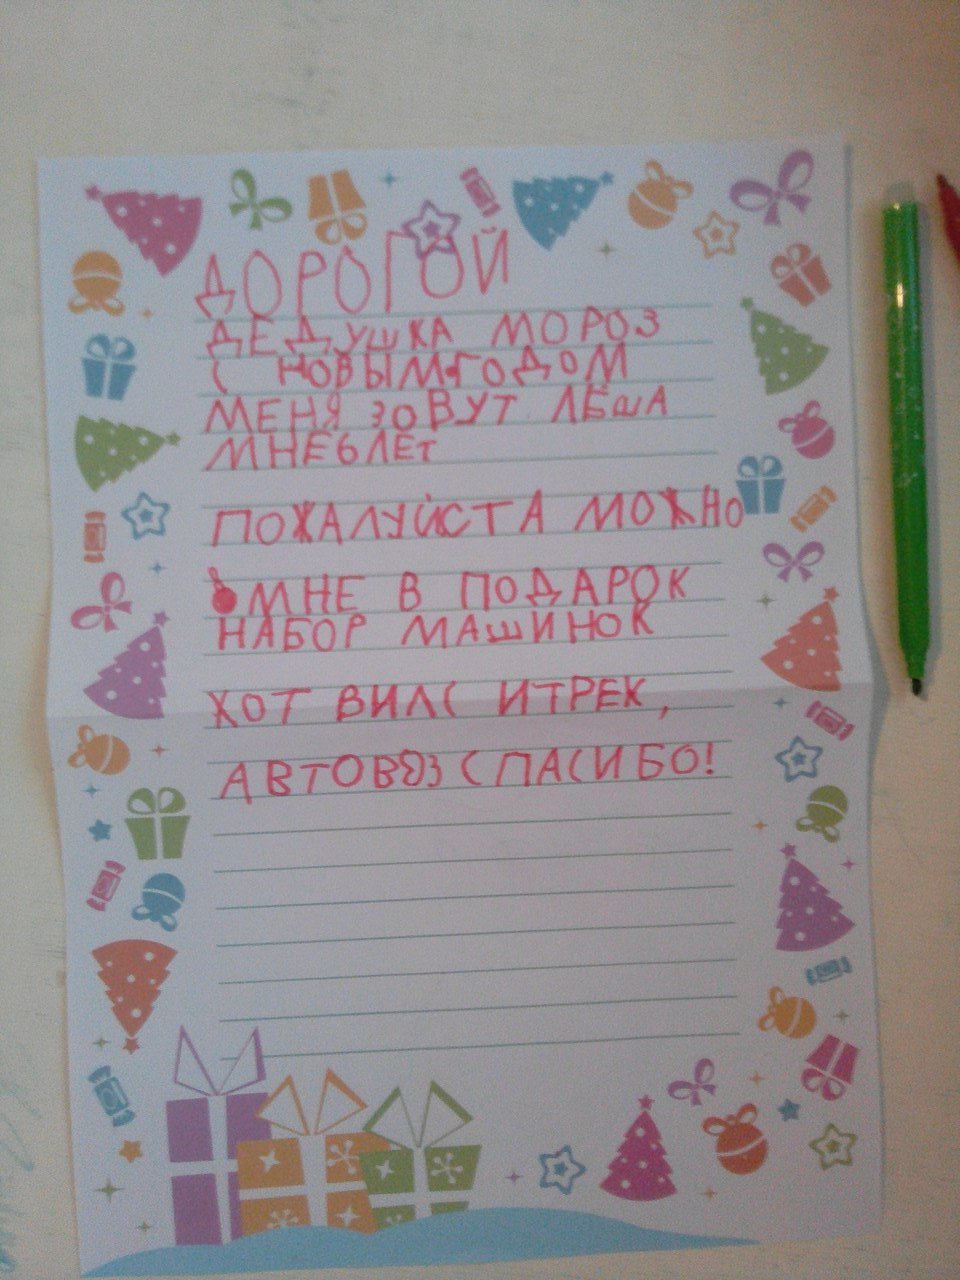 ДОРОГОЙ
ДЕДУШКА МОРОЗ
С НОВЫМ ГОДОМ
МЕНЯ ЗОВУТ ЛЁША
МНЕ 6 ЛЕТ
ПОЖАЛУЙСТА МОЖНО
МНЕ В ПОДАРОК
НАБОР МАШИНОК
ХОТ ВИЛС ИТРЕК,
АВТОВОЗ СПАСИБО!